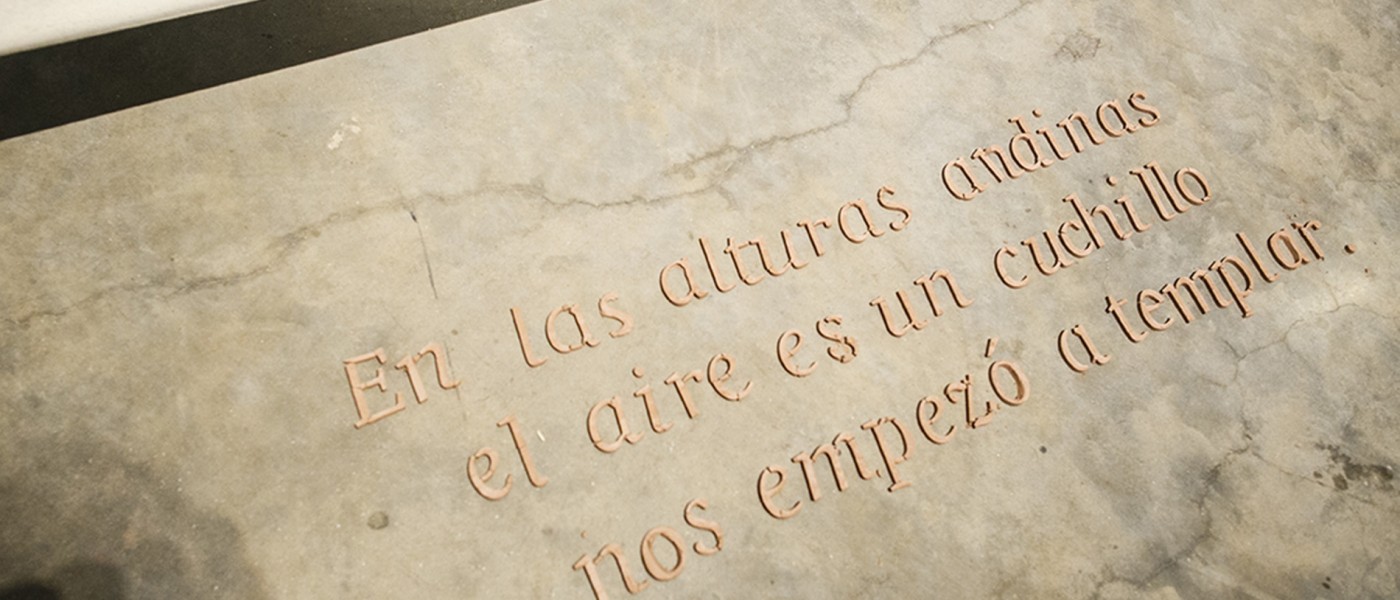 En las alturas andinas
el aire es un cuchillo
nos empezó a templar.